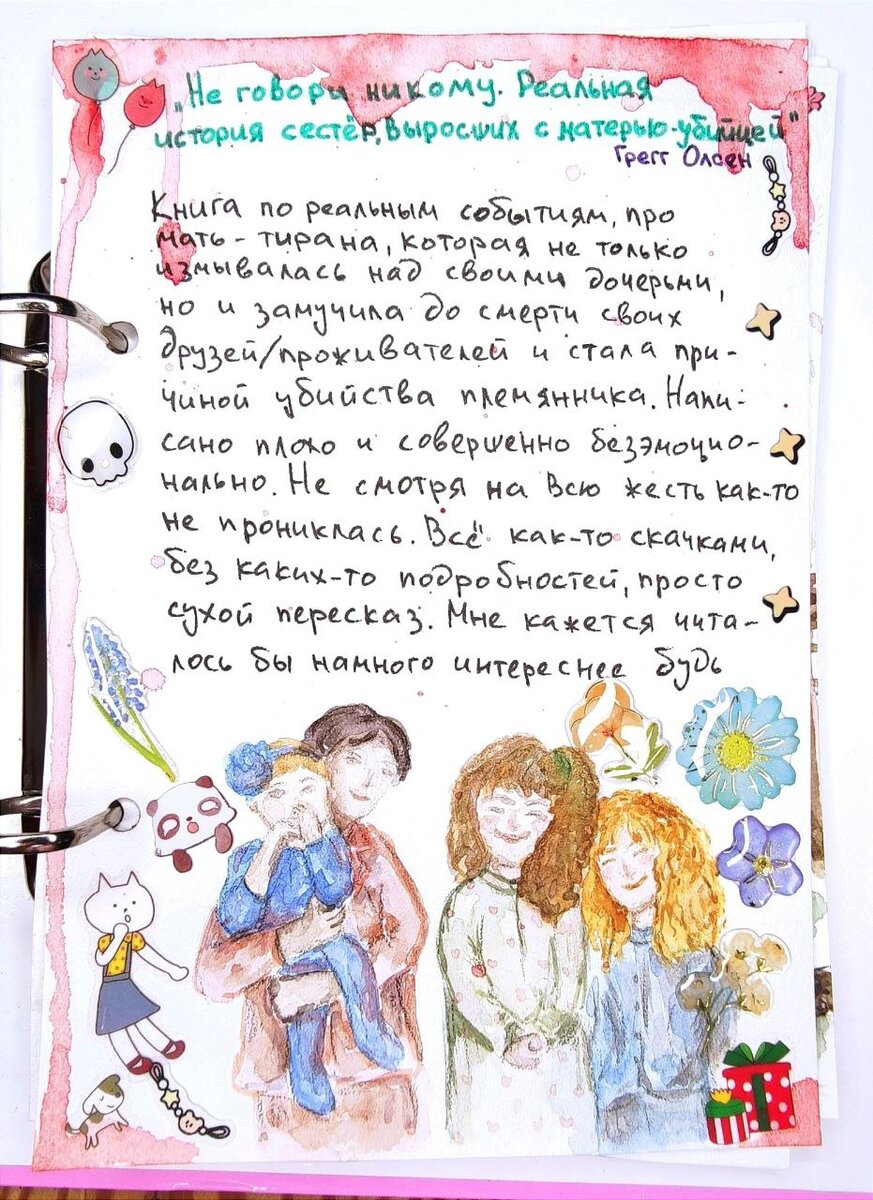 „Не говори никому. Реальная
история сестёр, выросших с матерью-убийцей"
Грегг Олсен
Книга по реальным событиям, про
мать-тирана, которая не только
измывалась над своими дочерьми,
но и замучила до смерти своих
друзей/проживателей и стала при-
чиной убийства племянника. Напи-
сано плохо и совершенно безэмоцио-
нально. Не смотря на всю жесть как-то
не прониклась. Всё как-то скачками,
без каких-то подробностей, просто
сухой пересказ. Мне кажется чита-
лось бы намного интереснее будь